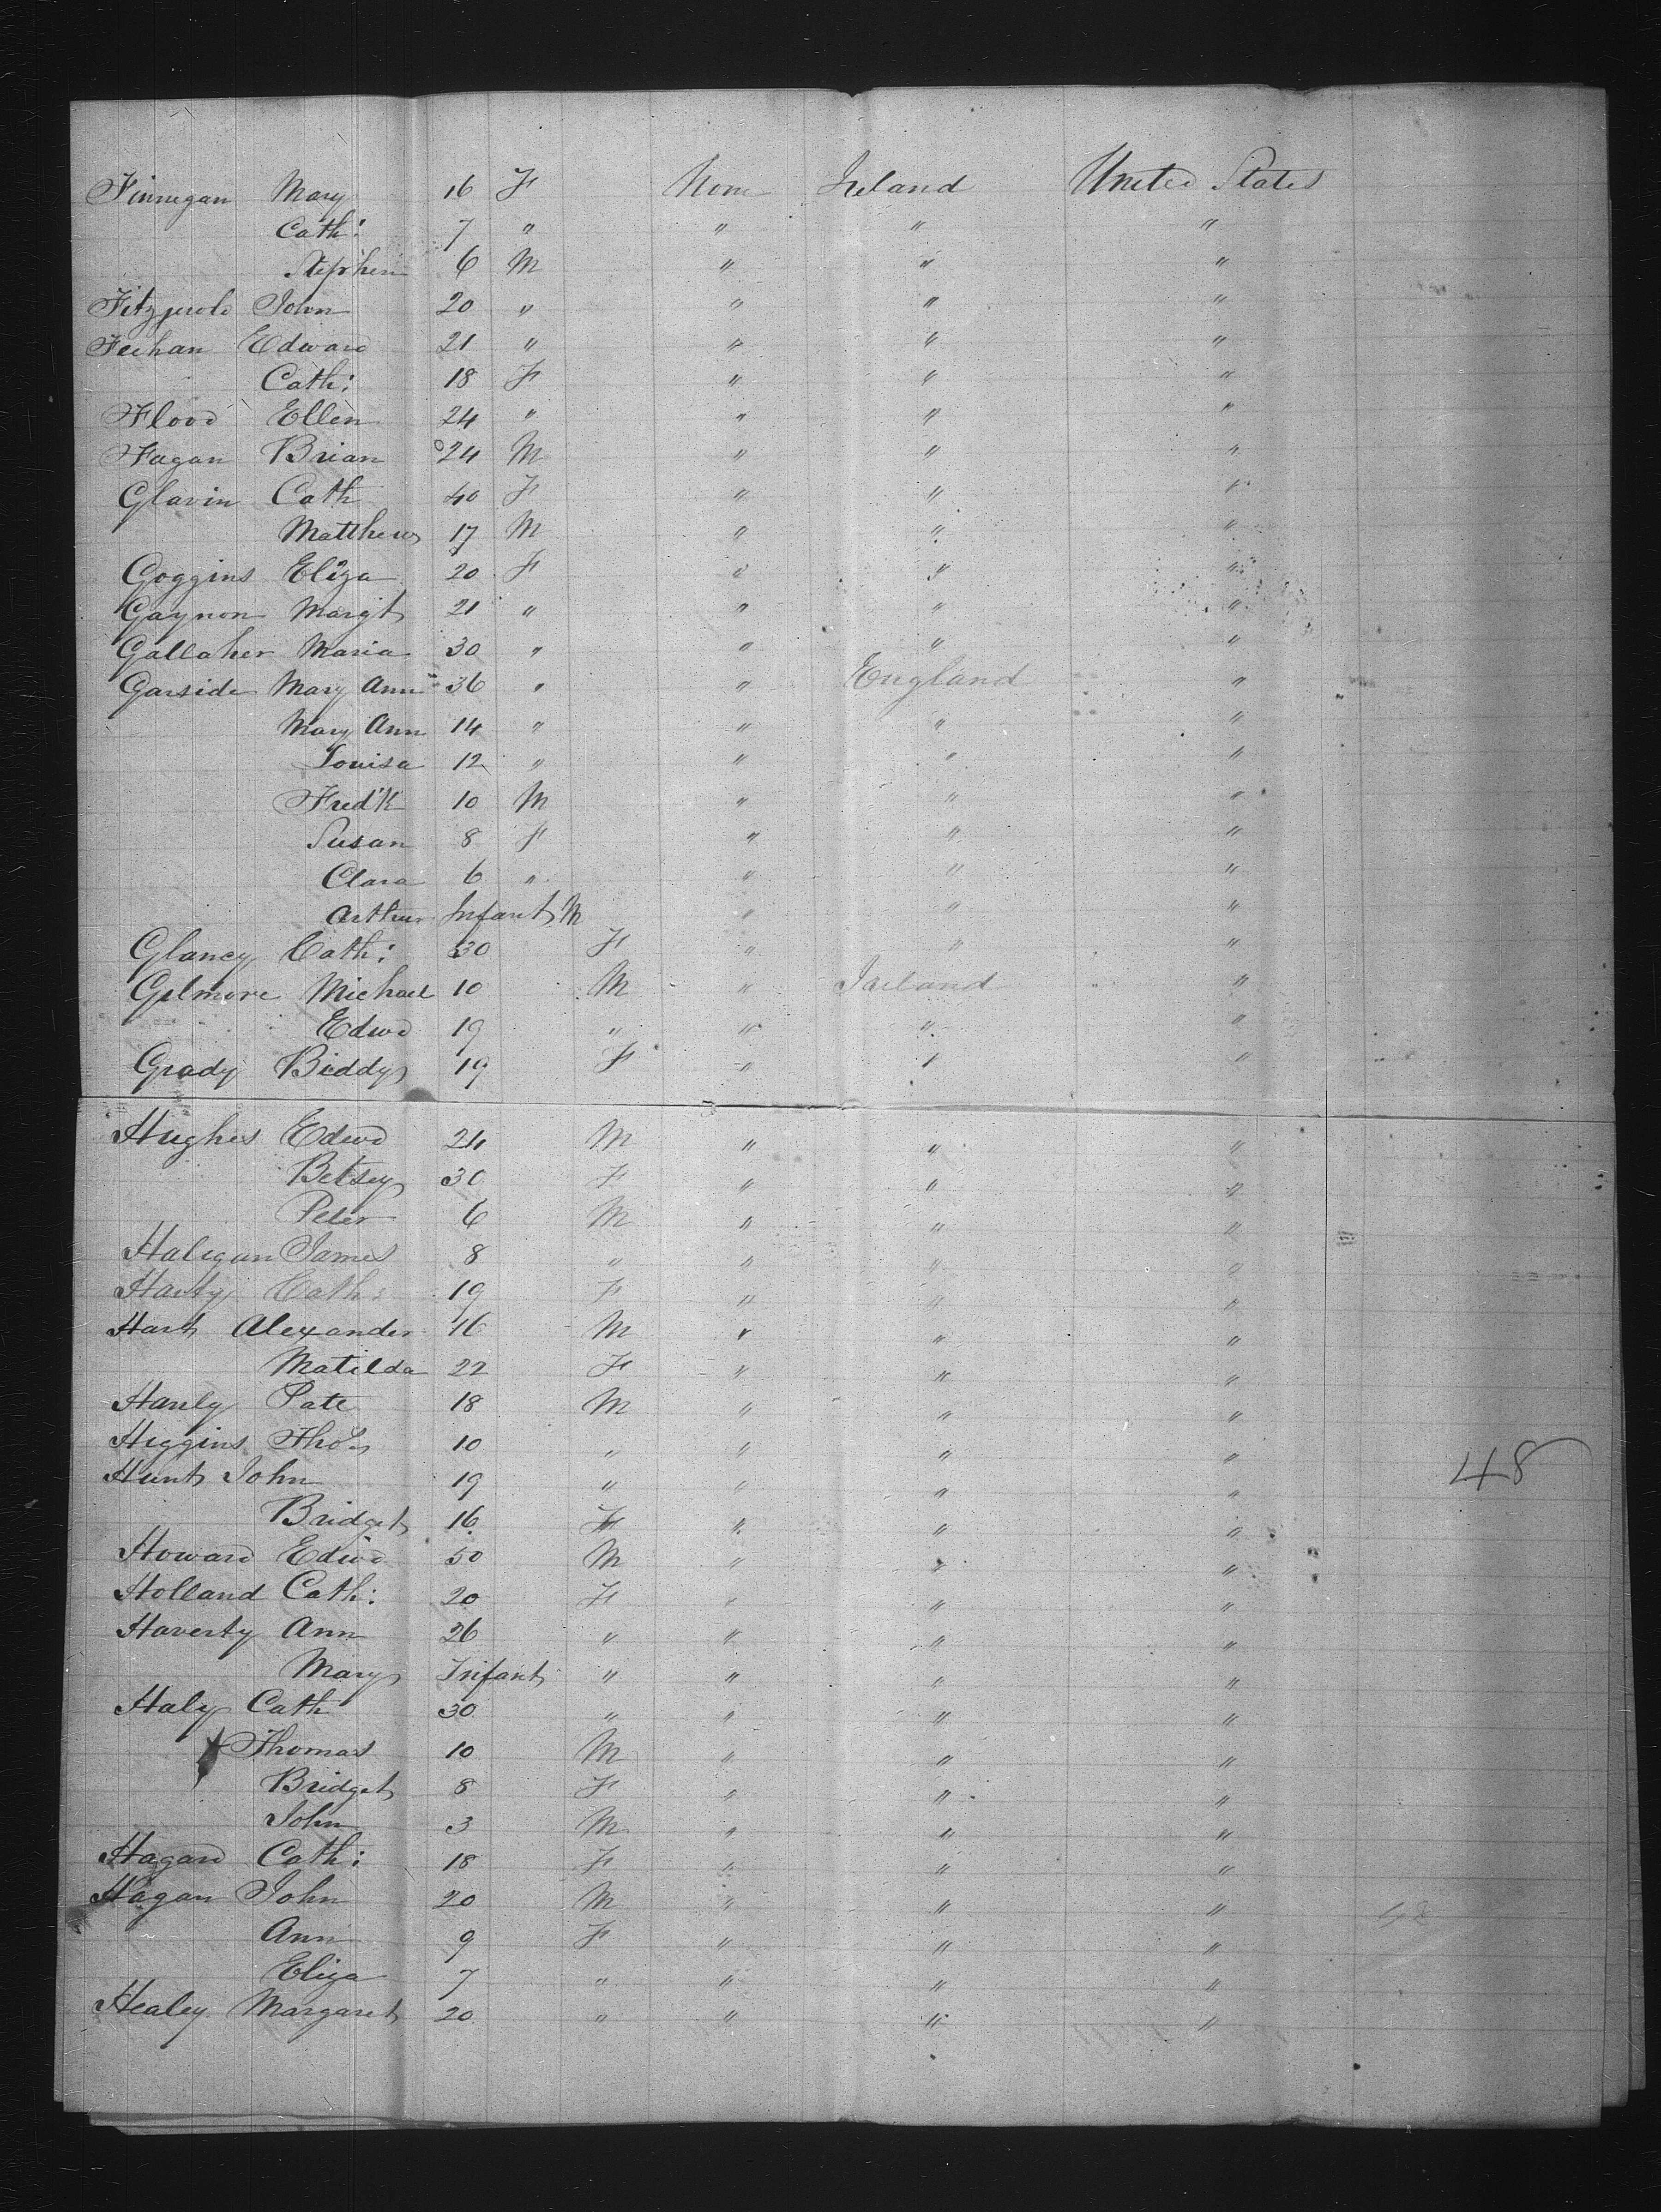 Finnegan Mary 16 F None Ireland United States
Cath: 7 " " " "
Stephen 6 M " " "
Fitzgerold John 20 " " " "
Feehan Edward 21 " " " "
Cath: 18 F " " "
Flood Ellen 24 " " " "
Fagan Brian 24 M " " "
Glavin Cath 40 F " " "
Matthew 17 M " " "
Goggins Eliza 20 F " " "
Gaynon Margt 21 " " " "
Gallaher Maria 30 " " " "
Garside Mary Ann 36 " " England "
Mary Ann 14 " " " "
Louisa 12 " " " "
Fred'k 10 M " " "
Susan 8 F " " "
Clara 6 " " " "
Arthur Infant M " " "
Glancy Cath: 30 F " " "
Gilmore Michael 10 M " Ireland "
Edwd 19 " " " "
Grady Biddy 19 F " " "
Hughes Edwd 24 M " " "
Betsey 30 F " " "
Peter 6 M " " "
Haligan James 8 " " " "
Harty Cath: 19 F " " "
Hart Alexander 16 M " " "
Matilda 22 F " " "
Hanly Pate 18 M " " "
Higgins Thos 10 " " " "
Hunt John 19 " " " " 48
Bridget 16 F " " "
Howard Edwd 50 M " " "
Holland Cath: 20 F " " "
Haverty Ann 26 " " " "
Mary Infant " " " "
Haly Cath 30 " " " "
Thomas 10 M " " "
Bridget 8 F " " "
John 3 M " " "
Hagard Cath: 18 F " " "
Hagan John 20 M " " " 48
Ann 9 F " " "
Eliza 7 " " " "
Healey Margaret 20 " " " "